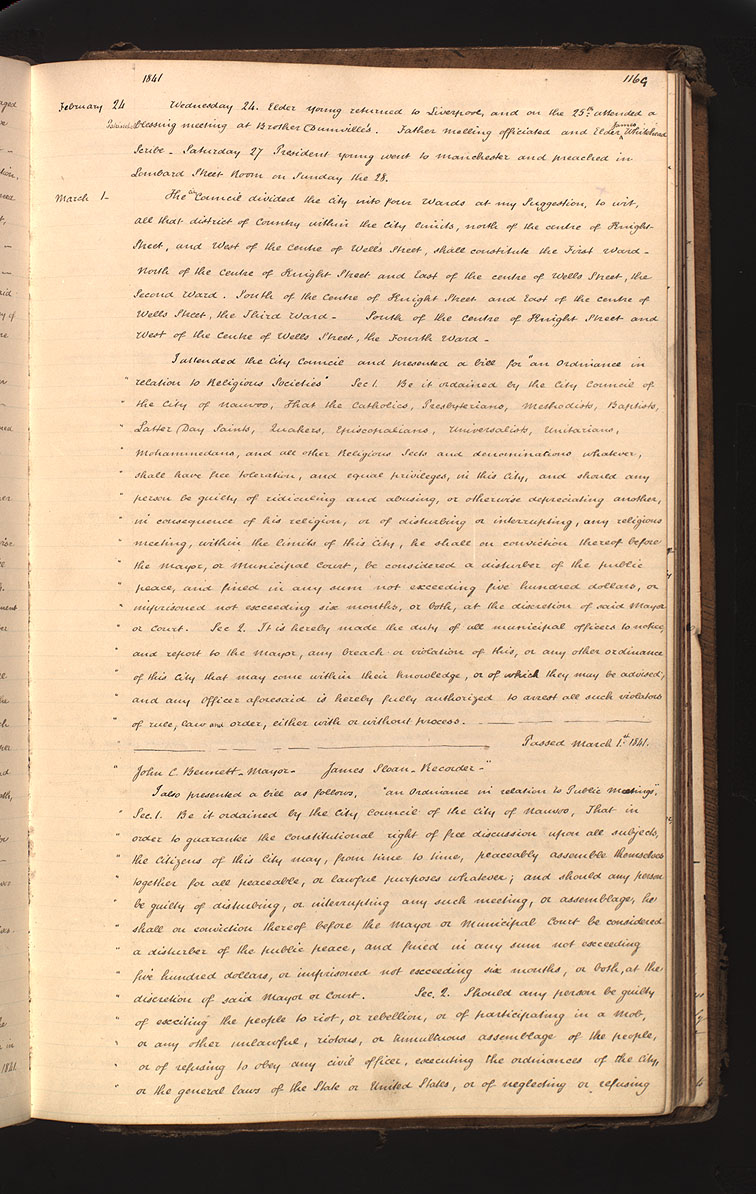 1841
1169
February 24 Wednesday 24. Elder Young returned to Liverpool, and on the 25th attended a
blessing meeting at Brother Dumville's. Father Melling officiated and Elder James Whitehead
Scribe – Saturday 27 President Young went to Manchester and preached in
Lombard Street Room on Sunday the 28.
March 1– The Council divided the City into four Wards at my Suggestion, to wit,
all that district of Country within the City limits, north of the centre of Knight
Street, and West of the Centre of Wells Street, shall constitute the First Ward –
North of the Centre of Knight Street and East of the centre of Wells Street, the
Second Ward. South of the Centre of Knight Street and East of the centre of
Wells Street, the Third Ward – South of the centre of Knight Street and
West of the Centre of Wells Street, the Fourth Ward –
I attended the City Council and presented a bill for "an Ordinance in
" relation to Religious Societies" Sec 1. Be it ordained by the City Council of
" the City of Nauvoo, That the Catholics, Presbyterians, Methodists, Baptists,
" Latter Day Saints, Quakers, Episcopalians, Universalists, Unitarians,
" Mohammedans, and all other Religious Sects and denominations whatever,
" shall have free toleration, and equal privileges, in this City, and should any
" person be guilty of ridiculing and abusing, or otherwise depreciating another,
" in consequence of his religion, or of disturbing or interrupting, any religious
" meeting, within the limits of this City, he shall on conviction thereof before
" the Mayor, or Municipal Court, be considered a disturber of the public
" peace, and fined in any sum not exceeding five hundred dollars, or
" imprisoned not exceeding six months, or both, at the discretion of said Mayor
" or Court. Sec 2. It is hereby made the duty of all municipal officers to notice,
" and report to the Mayor, any breach or violation of this, or any other ordinance
" of this City that may come within their knowledge, or of which they may be advised;
" and any Officer aforesaid is hereby fully authorized to arrest all such violators
" of rule, law and order, either with or without process.
" Passed March 1st 1841.
" John C. Bennett – Mayor – James Sloan – Recorder –"
I also presented a bill as follows, "an Ordinance in relation to Public Meetings"
" Sec. 1. Be it ordained by the City Council of the City of Nauvoo, That in
" order to guarantee the constitutional right of free discussion upon all subjects,
" the Citizens of this City may, from time to time, peaceably assemble themselves
" together for all peaceable, or lawful purposes whatever; and should any person
" be guilty of disturbing, or interrupting any such meeting, or assemblage, he
" shall on conviction thereof before the Mayor or Municipal Court be considered
" a disturber of the public peace, and fined in any sum not exceeding
" five hundred dollars, or imprisoned not exceeding six months, or both, at the
" discretion of said Mayor or Court. Sec. 2. Should any person be guilty
" of exciting the people to riot, or rebellion, or of participating in a mob,
" or any other unlawful, riotous, or tumultuous assemblage of the people,
" or of refusing to obey any civil officer, executing the ordinances of the City,
" or the general laws of the State or United States, or of neglecting or refusing